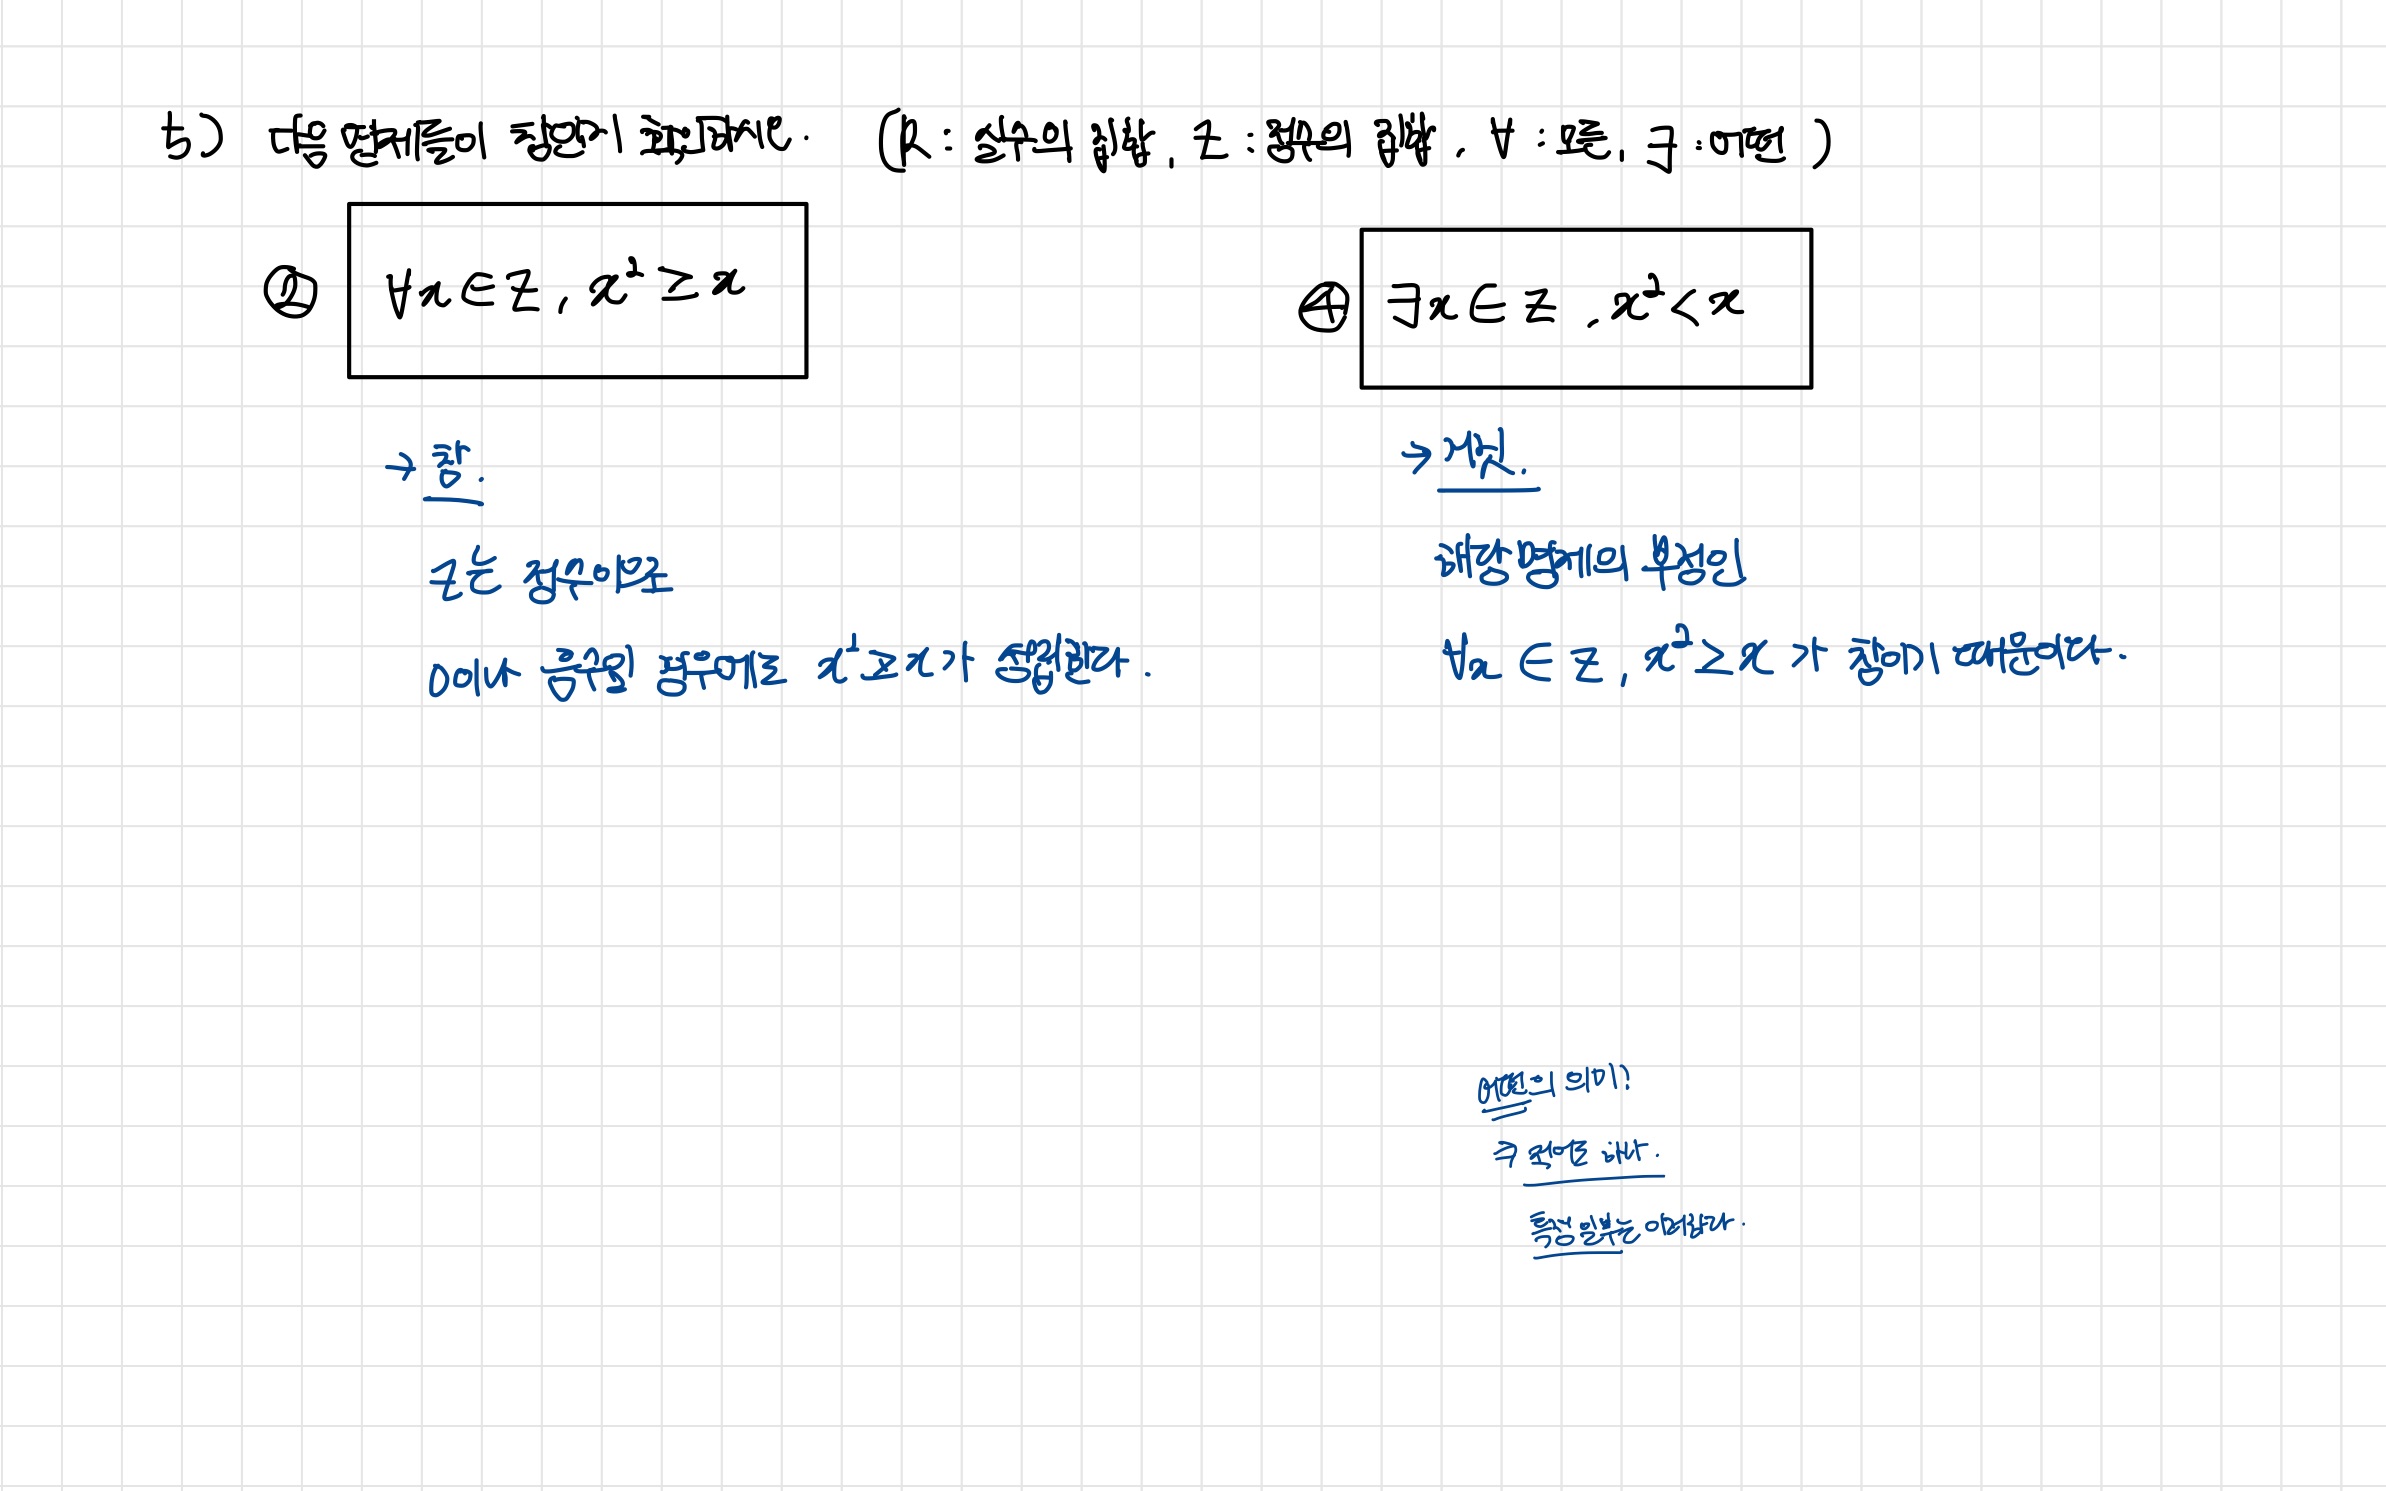 5) 다음 명제들이 참인지 판별하세요. (R : 실수의 집합, Z : 정수의 집합, ∀ : 모든, ∃ : 어떤)
② ∀x∈Z, x²≥x
④ ∃x∈Z, x²<x
→ 참.
Z는 정수이므로
0이나 음수일 경우에도 x²≥x가 성립한다.
→ 거짓.
해당 명제의 부정인
∀x∈Z, x²≥x가 참이기 때문이다.
어떤의 의미!
적어도 하나.
특정 일부는 이러하다.